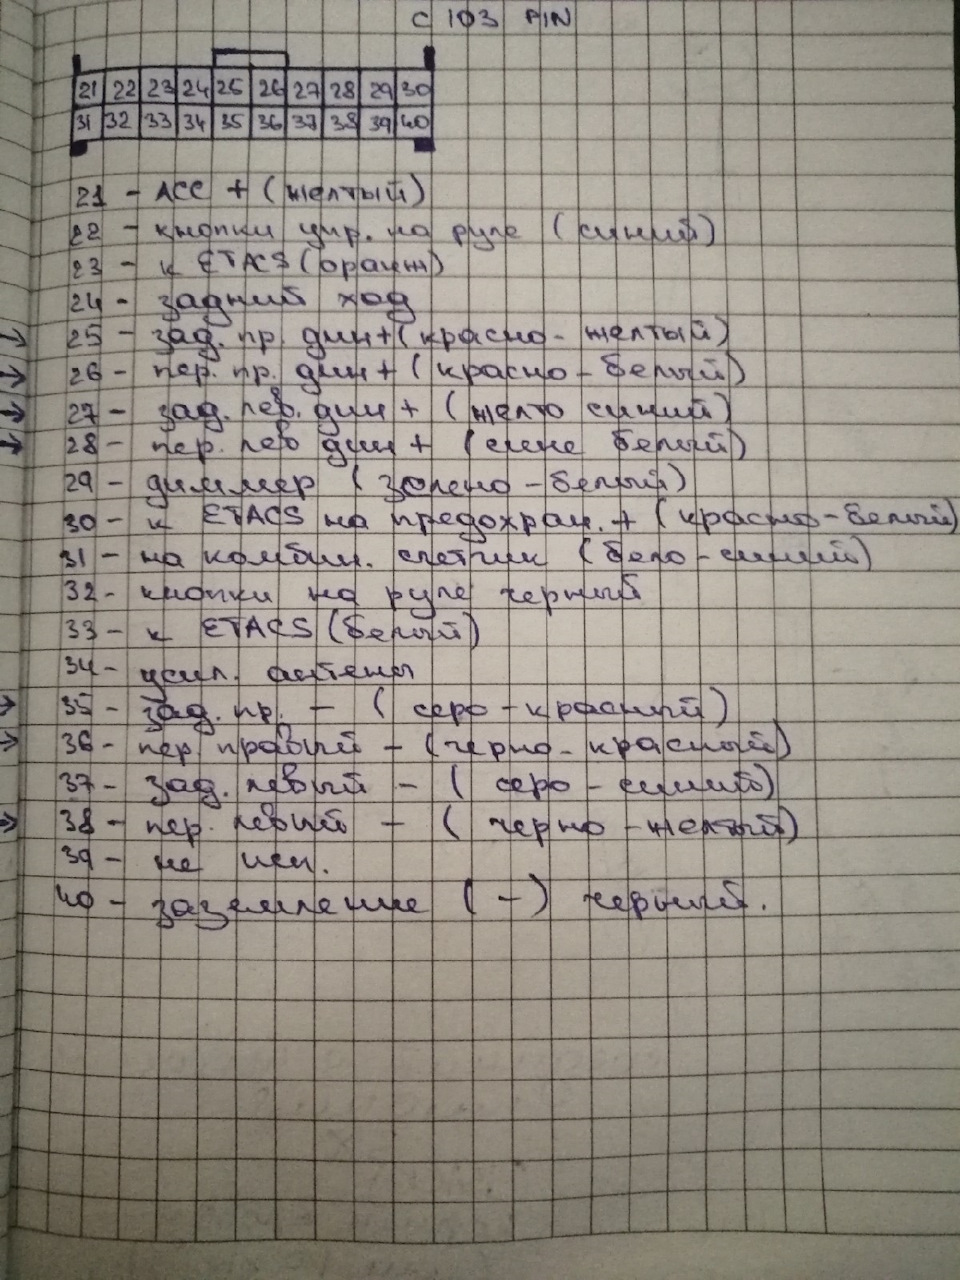 C 103 PIN
21 22 23 24 25 26 27 28 29 30
31 32 33 34 35 36 37 38 39 40
21 - ACC + (желтый)
22 - кнопки упр. на руле (синий)
23 - к ETACS (оранж)
24 - задний ход
25 - зад. пр. дин + (красно - желтый)
26 - пер. пр. дин + (красно - белый)
27 - зад. лев. дин + (желто синий)
28 - пер. лево дин + (сине белый)
29 - диммер (зелено - белый)
30 - к ETACS на предохран. + (красно - белый)
31 - на комбин. счетчик (бело - синий)
32 - кнопки на руле черный
33 - к ETACS (белый)
34 - усил. антены
35 - зад. пр. - (серо - красный)
36 - пер. правый - (черно - красный)
37 - зад. левый - (серо - синий)
38 - пер. левый - (черно - желтый)
39 - не исп.
40 - заземление (-) черный.